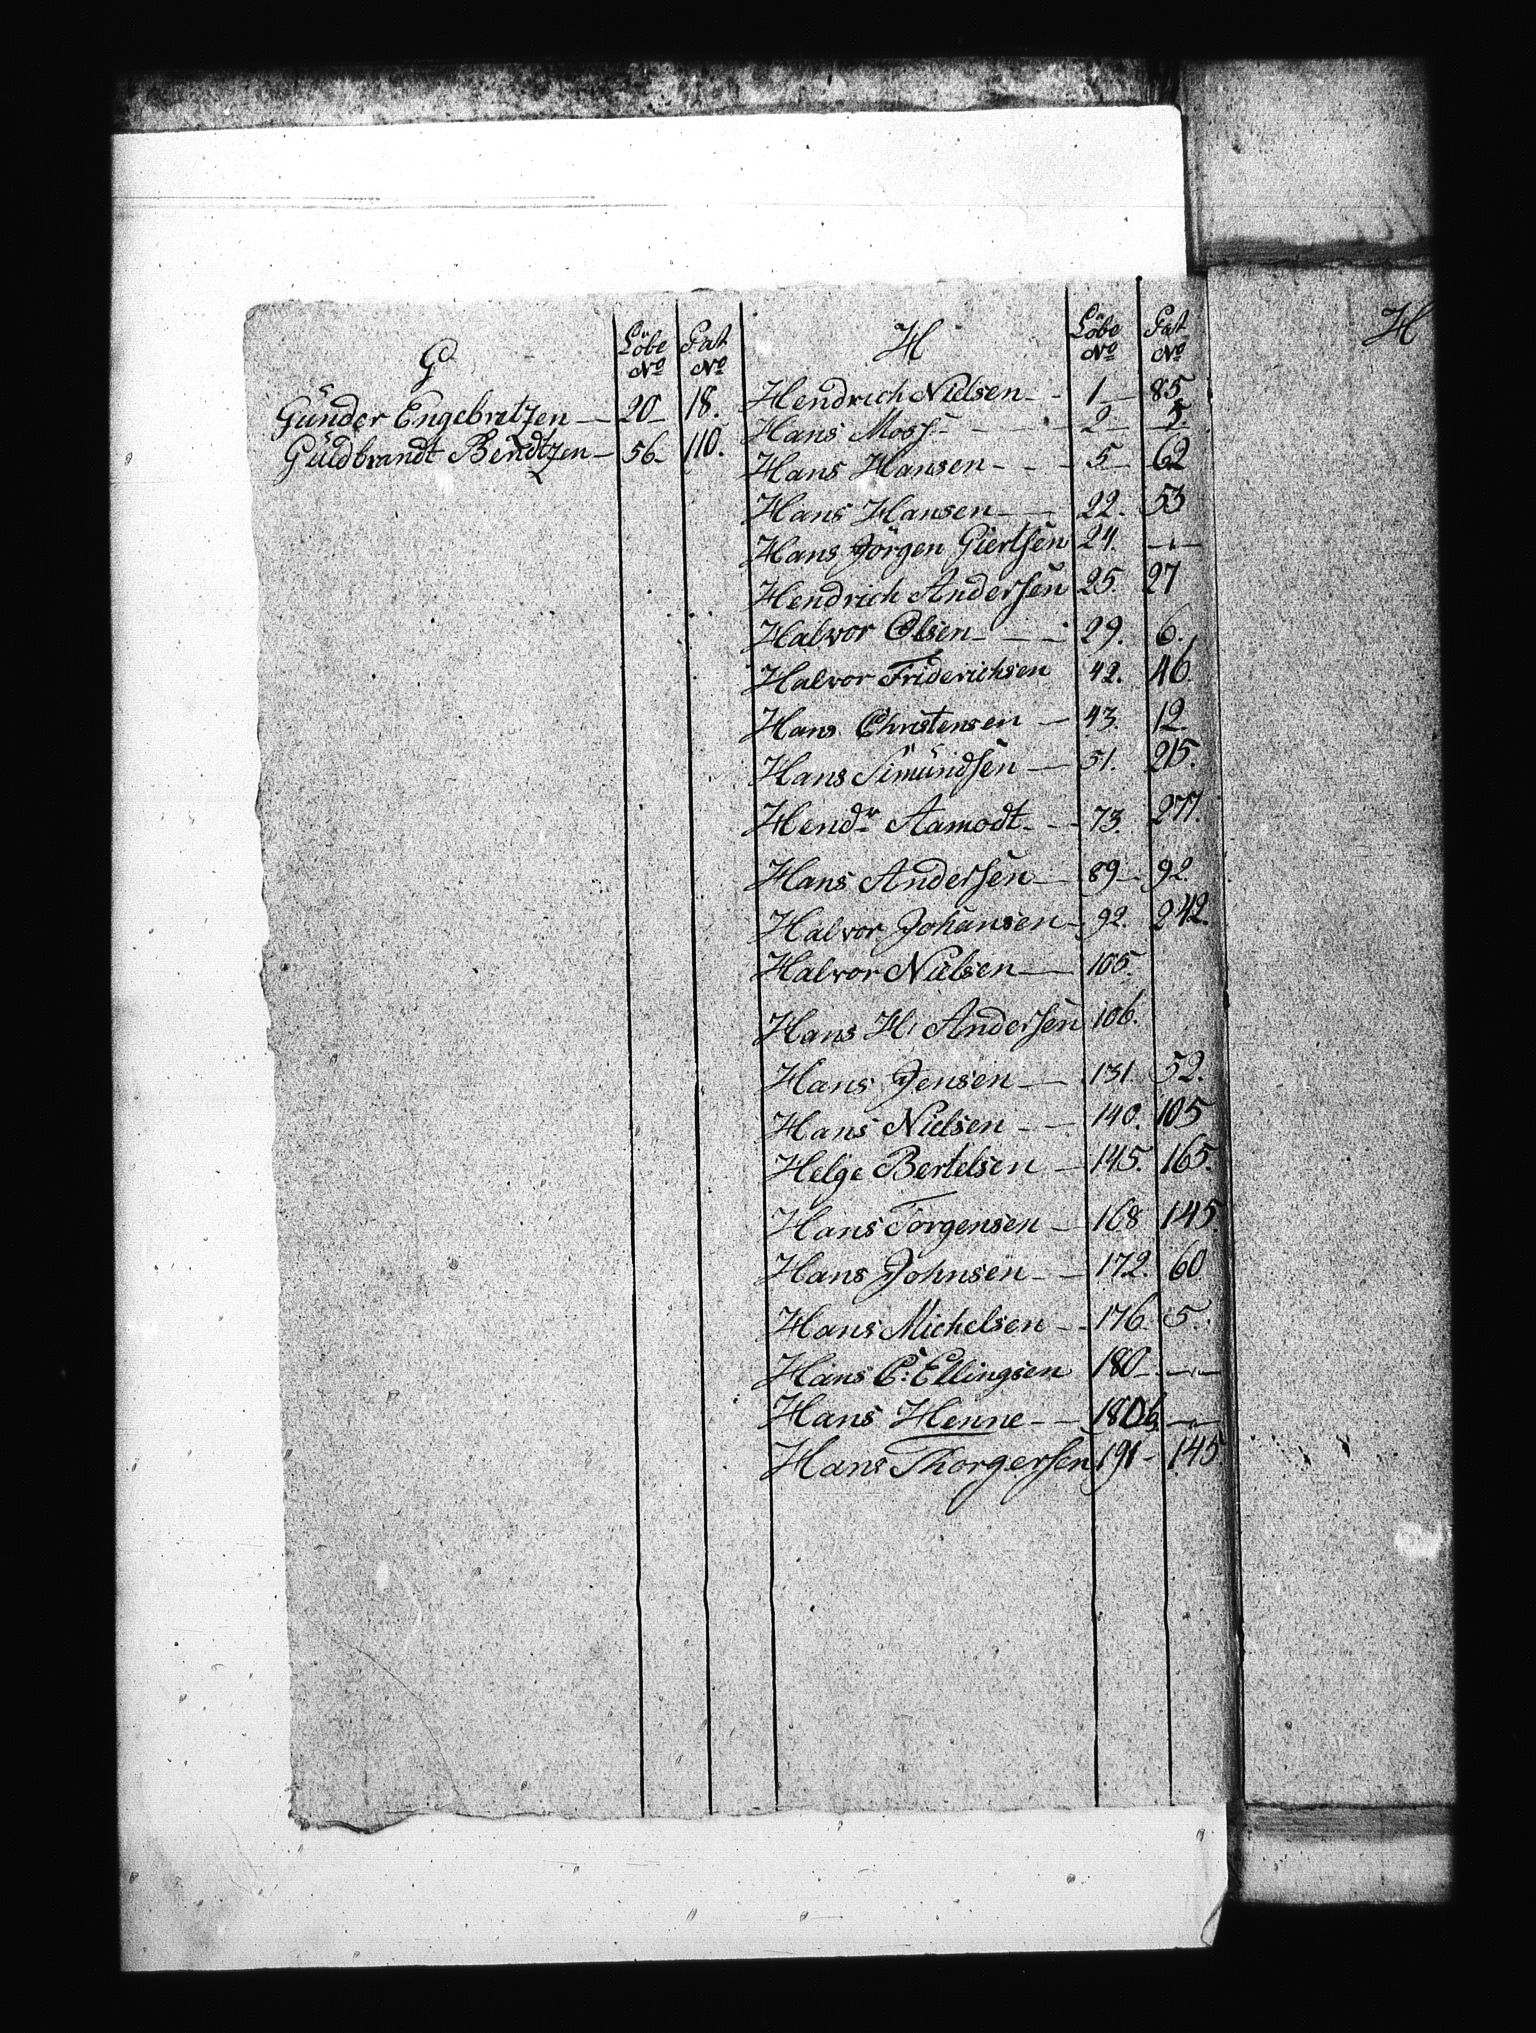 G Löbe No Pat No
Günder Engebretzen — 20 — 18.
Güldbrandt Bendtzen — 56 — 110.
H Löbe No Pat No
Hendrich Nielsen — 1 — 85
Hans Moss — 2 — 5.
Hans Hansen — 5 — 62
Hans Hansen — 22. 53
Hans Jörgen Giertsen 24. —
Hendrich Andersen 25. 27
Halvor Olsen — 29. 6.
Halvor Friderichsen 42. 46.
Hans Christensen — 43. 12.
Hans Simündsen — 51. 215.
Hendr Aamodt — 73. 277.
Hans Andersen — 89 — 92
Halvor Johansen — 92. 242.
Halvor Nielsen — 105.
Hans H: Andersen 106.
Hans Jensen — 131. 52.
Hans Nielsen — 140. 105
Helge Bertelsen — 145. 165.
Hans Torgensen — 168 145.
Hans Johnsen — 172. 60
Hans Michelsen — 176 5.
Hans C: Ellingsen 180 — —
Hans Henne — 180 b. —
Hans Thorgersen 191 — 145
H